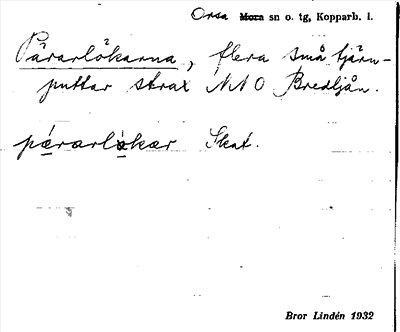 Orsa Mora sn o. tg, Kopparb. l.
Pärarlökarna, flera små tjärn-
puttar strax NNO Bredtjån.
pǽrarlò̱kær Skat.
Bror Lindén 1932